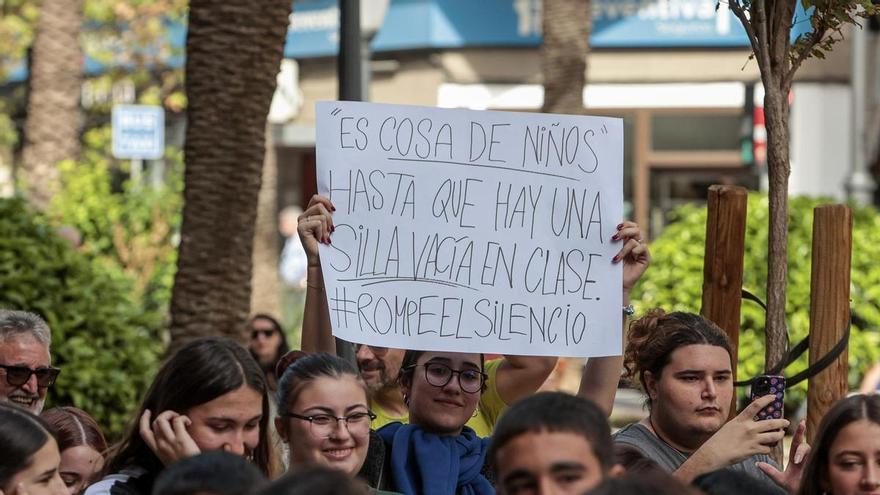 Preventiva
"ES COSA DE NIÑOS"
HASTA QUE HAY UNA
SILLA VACÍA EN CLASE.
#ROMPEELSILENCIO